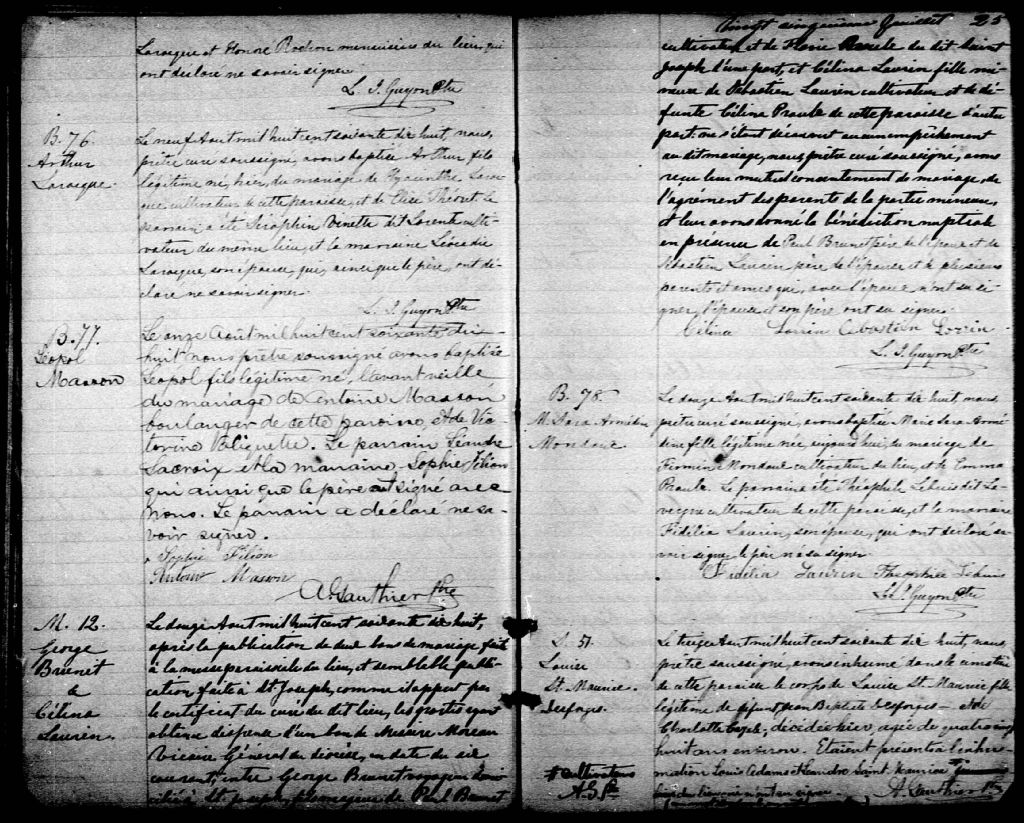 Laroque et Honoré Rochon menuisier du lieu, qui
ont déclaré ne savoir signer
L. J. Guyon Ptre
B. 76.
Arthur
Laroque.
Le neuf Aout mil huit cent soixante dix huit, nous,
prêtre curé soussigné, avons baptisé Arthur fils
légitime né, hier, du mariage de Hyacinthe Laro-
que cultivateur de cette paroisse, et de Elise Théoret. Le
parrain a été Séraphin Vinette dit Larente culti-
vateur du même lieu, et la marraine Léocadie
Laroque, son épouse qui, ainsi que le père, ont dé-
claré ne savoir signer.
L. J. Guyon Ptre
B. 77.
Léopol
Masson
Le onze Aout mil huit cent soixante dix
huit nous prêtre soussigné avons baptisé
Léopol fils légitime né, l'avant veille
du mariage de Antoine Masson
boulanger de cette paroisse, et de Vic-
torine Valiquette. Le parrain Léandre
Lacroix et la marraine Sophie Filion
qui ainsi que le père ont signé avec
nous. Le parrain a déclaré ne sa-
voir signer.
Sophie Filion
Antoine Masson
A. Gauthier Ptre
M. 12.
George
Brunet
&
Célina
Laurin.
Le douze Aout mil huit cent soixante dix huit,
après la publication de deux bans de mariage faite
à la messe paroissiale du lieu, et semblable publi-
cation faite à St. Joseph, comme il appert par
le certificat du curé du dit lieu, les parties ayant
obtenu dispense d'un ban de Messire Moreau
Vicaire Général du diocèse, en date du six
courant, entre George Brunet voyageur domi-
cilié à St. Joseph, fils majeur de Paul Brunet
Vingt cinquième feuillet 25
cultivateur et de Flavie Proulx du dit Saint
Joseph d'une part, et Célina Laurin fille mi-
neure de Sébastien Laurin cultivateur et de dé-
funte Célina Proulx de cette paroisse d'autre
part: ne s'étant découvert aucun empêchement
au dit mariage, nous, prêtre curé soussigné, avons
reçu leur mutuel consentement de mariage, de
l'agrément des parents de la partie mineure,
et leur avons donné la bénédiction nuptiale
en présence de Paul Brunet père de l'époux et de
Sébastien Laurin père de l'épouse et de plusieurs
parents et amis qui, avec l'époux n'ont su si-
gner, l'épouse et son père ont su signer.
Célina Lorrin Cébastien Lorrin
L. J. Guyon Ptre
B. 78.
M. Dora Arméline
Mondoux
Le douze Aout mil huit cent soixante dix huit, nous,
prêtre curé soussigné, avons baptisé Marie Dora Armé-
line fille légitime née, aujourd'hui, du mariage de
Firmin Mondoux cultivateur du lieu, et de Emma
Proulx. Le parrain a été Théophile Lebuis dit La-
vergne cultivateur de cette paroisse, et la marraine
Fidélia Laurin, son épouse, qui ont déclaré sa-
voir signer, le père n'a su signer.
Fidélia Laurin Theophile Lebuis
L. J. Guyon Ptre
S. 51.
Louise
St. Maurice
Desforges.
Le treize Aout mil huit cent soixante dix huit, nous
prêtre soussigné, avons inhumé dans le cimetière
de cette paroisse le corps de Louise St. Maurice fille
légitime de défunt Jean Baptiste Desforges et de
Charlotte, décédée hier, agée de quatre vingt
huit ans environ. Etaient présents à l'inhu-
mation Louis Adams et Léandre Saint Maurice #
# cultivateurs
A. G. Ptre
A. Gauthier Ptre